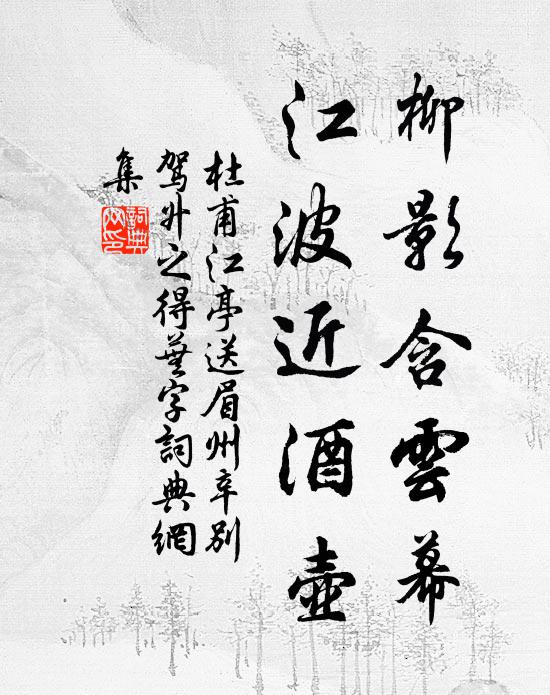 柳影含雲幕
江波近酒壺
杜甫江亭送眉州辛別
駕升之得蕪字詞典網
集
詞典
网印